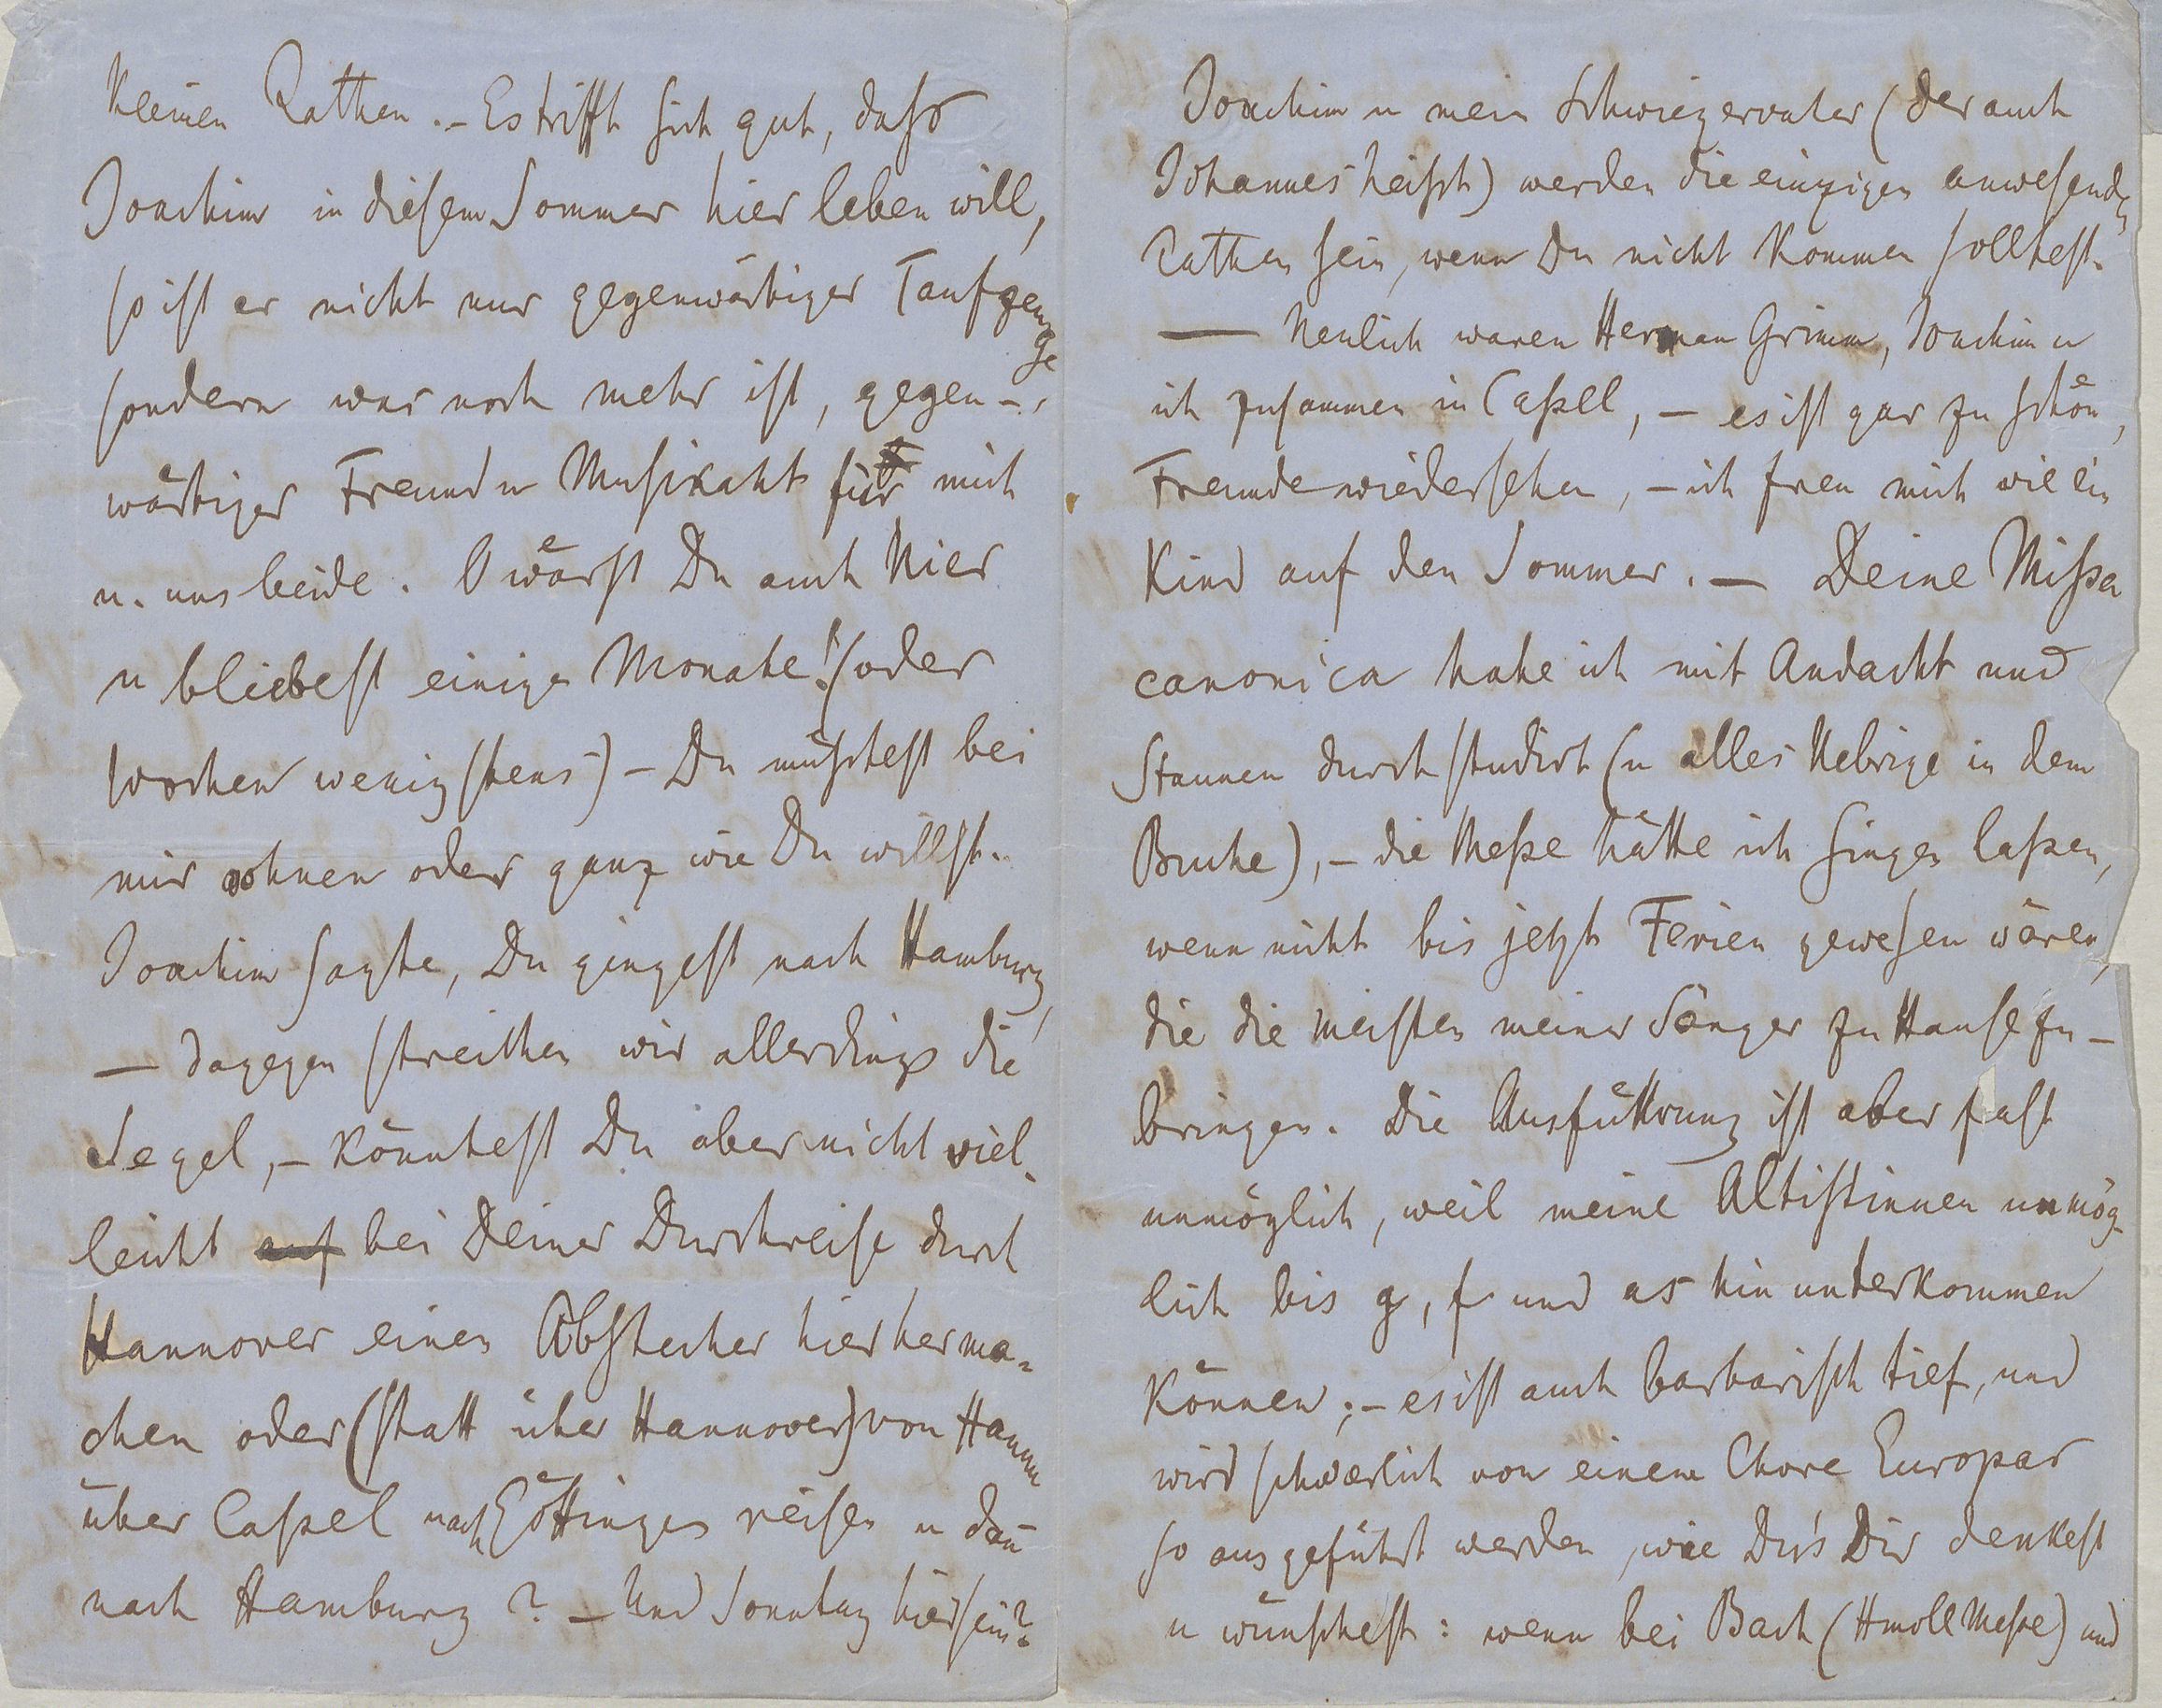 kleinen Pathen. – Es trifft sich gut, daß
Joachim in diesem Sommer hier leben will,
so ist er nicht nur gegenwärtiger Taufzeuge
sondern was noch mehr ist, gegen-
wärtiger Freund u Musikant für mich
u. uns beide. O wärst Du auch hier
u bliebest einige Monate! (oder
Wochen wenigstens) – Du müßtest bei
mir wohnen oder ganz wie Du willst.
Joachim sagte, Du gingest nach Hamburg,
– dagegen streichen wir allerdings die
Segel, – könntest Du aber nicht viel-
leicht auf bei Deiner Durchreise durch
Hannover einen Abstecher hierher ma-
chen oder (statt über Hannover) von Hamm
über Cassel nach Göttingen reisen u dañ
nach Hamburg? – Und Sonntag hier sein?
Joachim u mein Schwiegervater (der auch
Johannes heißt) werden die einzigen anwesenden
Pathen sein, wenn Du nicht kommen solltest.
— Neulich waren Herman Grimm, Joachim u
ich zusammen in Cassel, – es ist gar zu schön,
Freunde wiedersehen, – ich freu mich wie ein
Kind auf den Sommer. – Deine Missa
canonica habe ich mit Andacht und
Staunen durchstudirt (u alles Uebrige in dem
Buche), – die Messe hätte ich singen lassen,
wenn nicht bis jetzt Ferien gewesen wären,
die die meisten meiner Sänger zu Hause zu-
bringen. Die Ausführung ist aber fast
unmöglich, weil meine Altistinnen unmög-
lich bis g, f und as hinunterkommen
können; – es ist auch barbarisch tief, und
wird schwerlich von einem Chore Europas
so ausgeführt werden, wie Du's Dir denkest
u wünschest: wenn bei Bach (Hmoll Messe) und